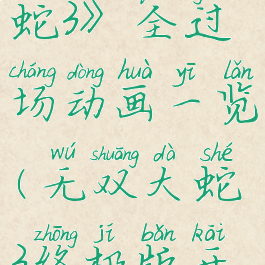 蛇3》全过
cháng dòng huà yī lǎn
场动画一览
wú shuāng dà shé
（无双大蛇
zhōng jí bǎn kāi
3终极版开